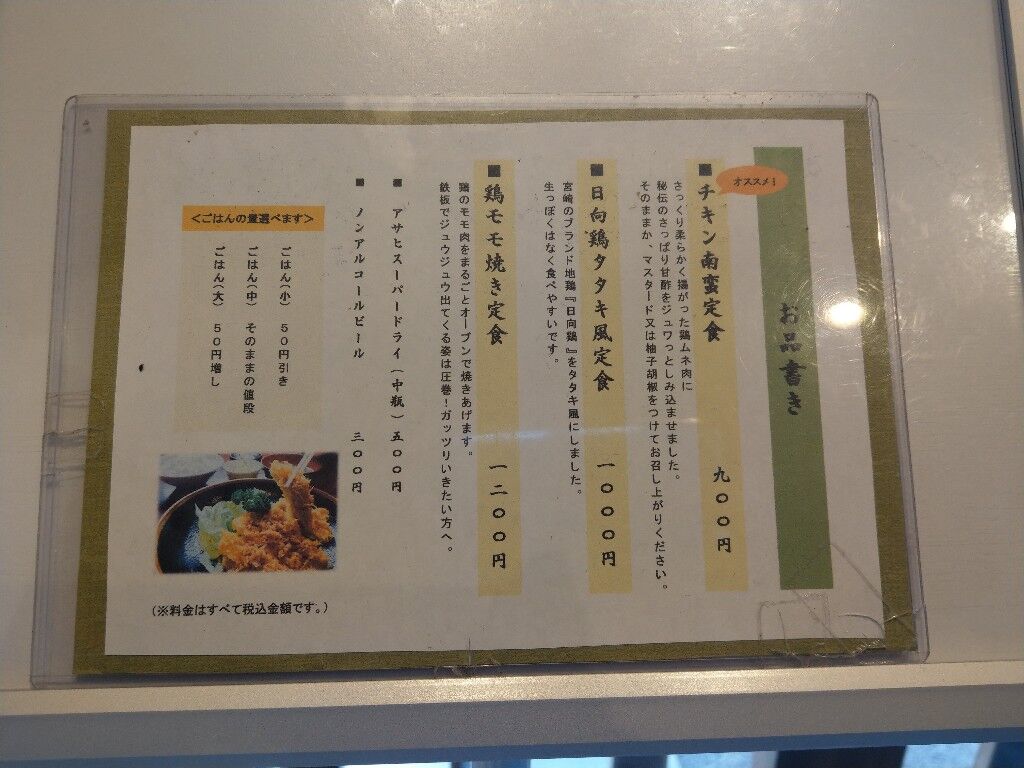 お品書き
オススメ!
■チキン南蛮定食 九〇〇円
さっくり柔らかく揚がった鶏ムネ肉に
秘伝のさっぱり甘酢をジュワっとしみ込ませました。
そのままか、マスタード又は柚子胡椒をつけてお召し上がりください。
■日向鶏タタキ風定食 一〇〇〇円
宮崎のブランド地鶏『日向鶏』をタタキ風にしました。
生っぽくはなく食べやすいです。
■鶏モモ焼き定食 一二〇〇円
鶏のモモ肉をまるごとオーブンで焼きあげます。
鉄板でジュウジュウ出てくる姿は圧巻!ガッツリいきたい方へ。
■アサヒスーパードライ(中瓶)五〇〇円
■ノンアルコールビール 三〇〇円
<ごはんの量選べます>
ごはん(小) 50円引き
ごはん(中) そのままの値段
ごはん(大) 50円増し
(※料金はすべて税込金額です。)